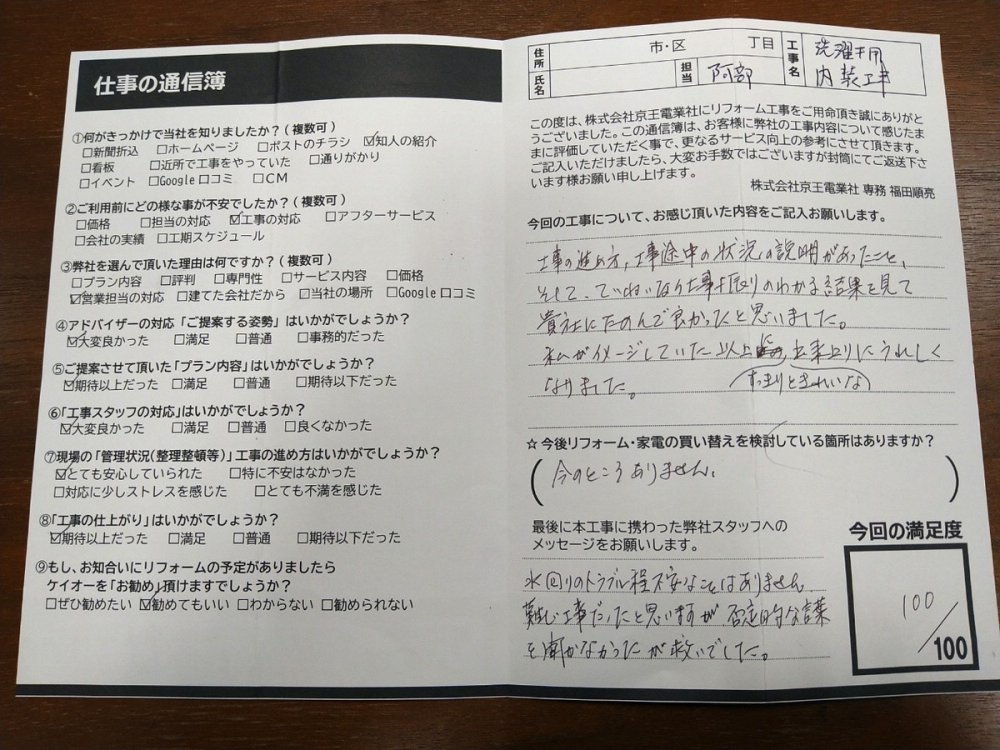 仕事の通信簿
①何がきっかけで当社を知りましたか？(複数可)
□新聞折込 □ホームページ □ポストのチラシ ☑知人の紹介
□看板 □近所で工事をやっていた □通りがかり
□イベント □Google口コミ □ＣＭ
②ご利用前にどの様な事が不安でしたか？(複数可)
□価格 □担当の対応 ☑工事の対応 □アフターサービス
□会社の実績 □工期スケジュール
③弊社を選んで頂いた理由は何ですか？(複数可)
□プラン内容 □評判 □専門性 □サービス内容 □価格
☑営業担当の対応 □建てた会社だから □当社の場所 □Google口コミ
④アドバイザーの対応「ご提案する姿勢」はいかがでしょうか？
☑大変良かった □満足 □普通 □事務的だった
⑤ご提案させて頂いた「プラン内容」はいかがでしょうか？
☑期待以上だった □満足 □普通 □期待以下だった
⑥「工事スタッフの対応」はいかがでしょうか？
☑大変良かった □満足 □普通 □良くなかった
⑦現場の「管理状況(整理整頓等)」工事の進め方はいかがでしょうか？
☑とても安心していられた □特に不安はなかった
□対応に少しストレスを感じた □とても不満を感じた
⑧「工事の仕上がり」はいかがでしょうか？
☑期待以上だった □満足 □普通 □期待以下だった
⑨もし、お知合いにリフォームの予定がありましたら
ケイオーを「お勧め」頂けますでしょうか？
□ぜひ勧めたい ☑勧めてもいい □わからない □勧められない
住所 市・区 丁目
氏名 担当 阿部
工事名 洗濯干用
内装工事
この度は、株式会社京王電業社にリフォーム工事をご用命頂き誠にありがと
うございました。この通信簿は、お客様に弊社の工事内容について感じたま
まに評価していただく事で、更なるサービス向上の参考にさせて頂きます。
ご記入いただけましたら、大変お手数ではございますが封筒にてご返送下さ
います様お願い申し上げます。
株式会社京王電業社 専務 福田順亮
今回の工事について、お感じ頂いた内容をご記入お願いします。
工事の進め方、工事途中の状況の説明があったこと、
そして、ていねいな仕事振りのわかる結果を見て
貴社にたのんで良かったと思いました。
私がイメージしていた以上に出来上りにうれしく
(すっきりときれいな)
なりました。
☆今後リフォーム・家電の買い替えを検討している箇所はありますか？
(今のところありません。)
最後に本工事に携わった弊社スタッフへの
メッセージをお願いします。
水回りのトラブル程不安なことはありません
難しい工事だったと思いますが否定的な言葉
を聞かなかったが救いでした。
今回の満足度
100
/100